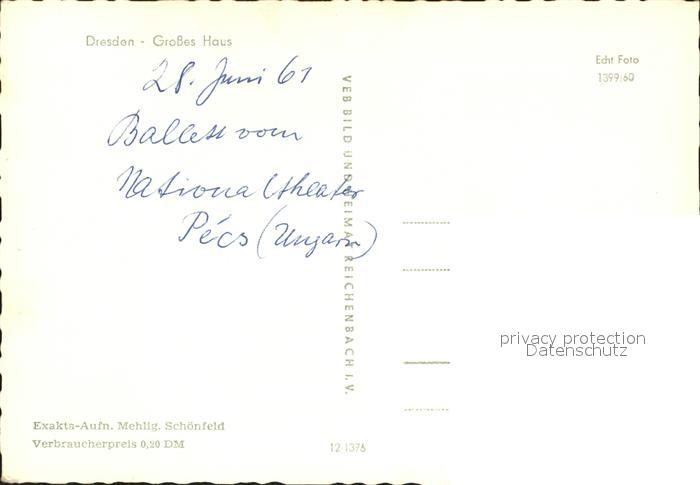 Dresden - Großes Haus
Echt Foto
1399/60
28. Juni 61
Ballett vom
Nationaltheater
Pécs (Ungarn)
VEB BILD UND HEIMAT REICHENBACH I. V.
privacy protection
Datenschutz
Exakta-Aufn. Mehlig, Schönfeld
Verbraucherpreis 0,20 DM
12 1376